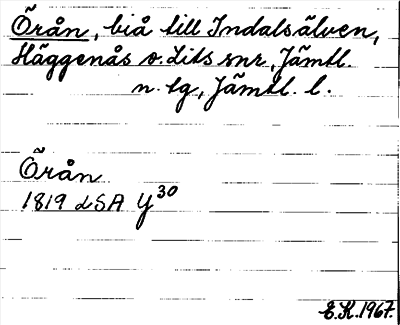 Örån, biå till Indalsälven,
Häggenås o. Lits snr, Jämtl.
n. tg, Jämtl. l.
Örån
1819 LSA Y30
E.K. 1967.